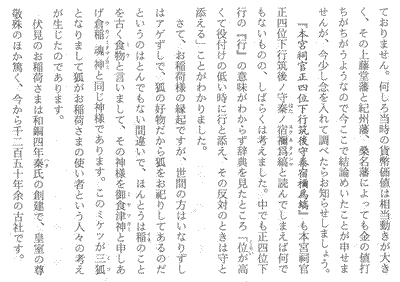 ておりません。何しろ当時の貨幣価値は相当動きが大き
く、その上藤堂藩と紀州藩、桑名藩によっても金の値打
ちがちがうようなので今ここで結論めいたことが申せま
せんが、今少し念を入れて調べたらお知らせしましょう。
『本宮祠官正四位下行筑後守秦宿禰爲縞』も本宮祠官
正四位下行筑後ノ守秦ノ宿禰爲縞と読んでしまえば何で
もないものの、しばらくは考えました。中でも正四位下
行の『行』の意味がわからず辞典を見たところ「位が高
くて役付けの低い時に行と添え、その反対のときは守と
添える」ことがわかりました。
さて、お稲荷様の縁起ですが、世間の方はいなりずし
はアゲずしで、狐の好物だから狐をお祀りしてあるのだ
というのはとんでもない間違いで、ほんとうは稲のこと
を古く食物と言いまして、その神様を御食津神と申しあ
げ倉稲魂神と同じ神様であります。このミケツが三狐
となりまして狐がお稲荷さまの使い者という人々の考え
が生じたのであります。
伏見のお稲荷さまは和銅四年秦氏の創建で、皇室の尊
敬殊のほか篤く、今から千二百五十年余の古社です。